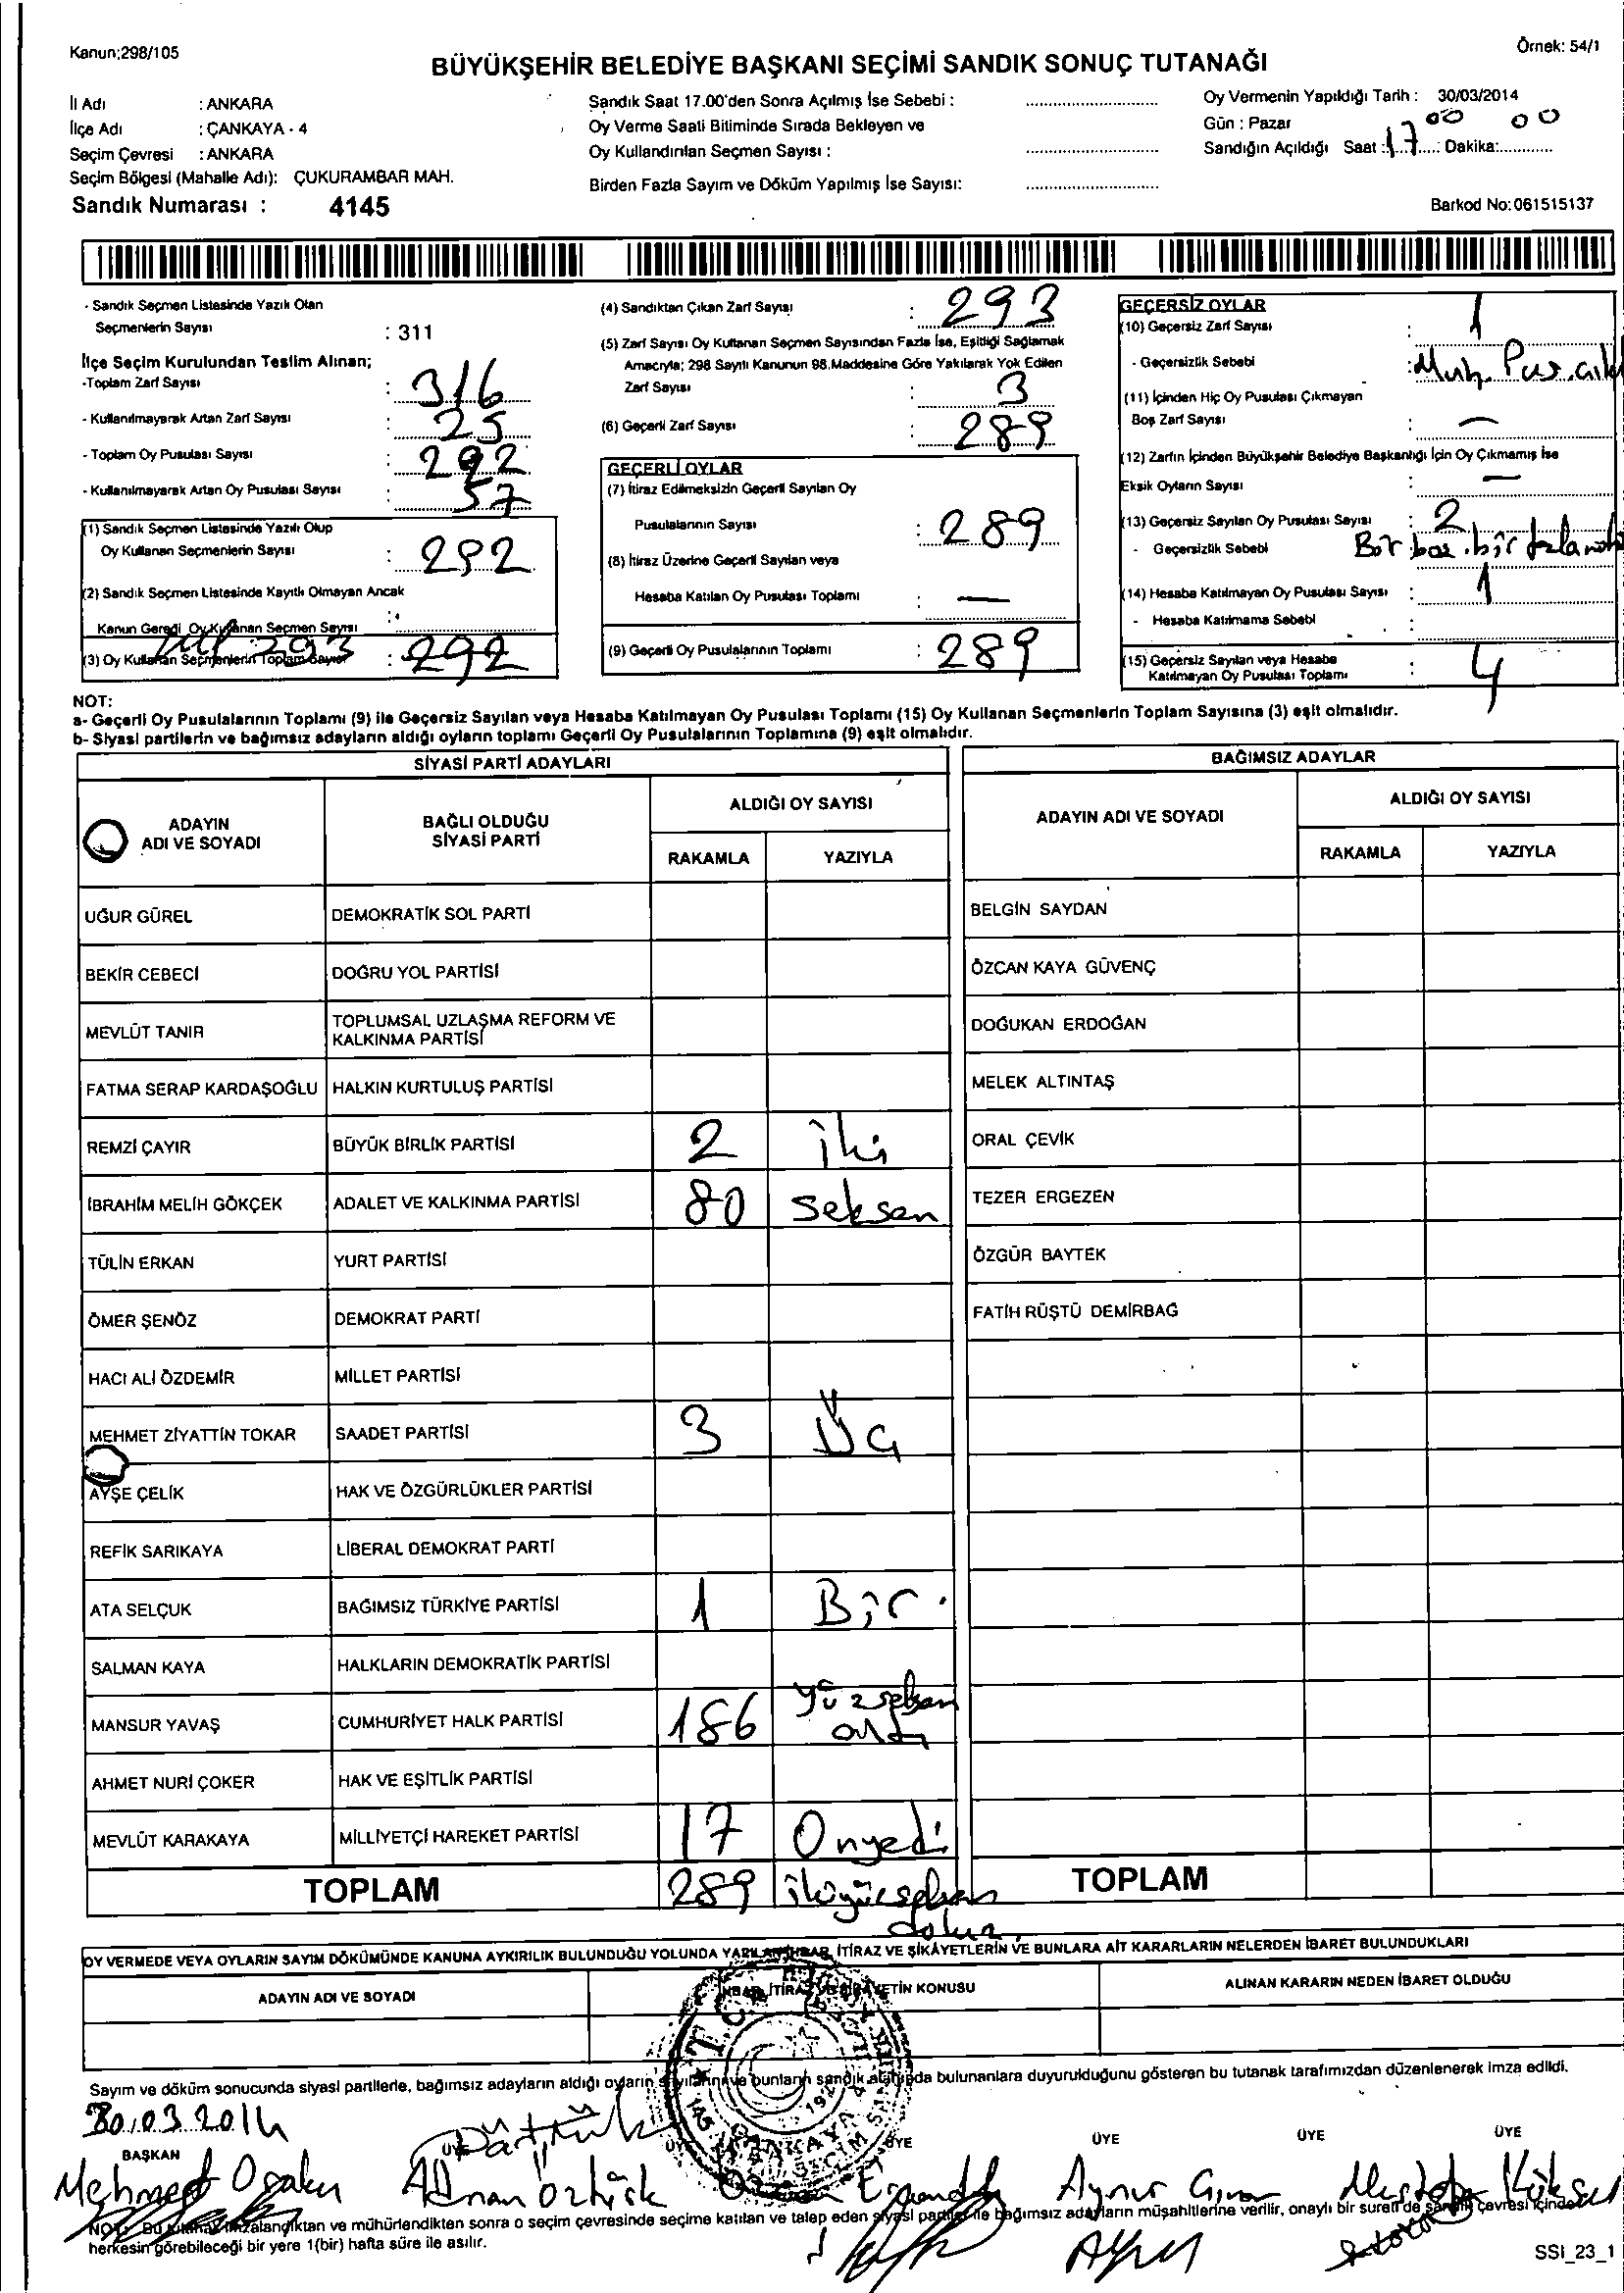 Kanun:298/105
Örnek: 54/1
BÜYÜKŞEHİR BELEDİYE BAŞKANI SEÇİMİ SANDIK SONUÇ TUTANAĞI
İl Adı : ANKARA
İlçe Adı : ÇANKAYA - 4
Seçim Çevresi : ANKARA
Seçim Bölgesi (Mahalle Adı): ÇUKURAMBAR MAH.
Sandık Numarası : 4145
Sandık Saat 17.00'den Sonra Açılmış İse Sebebi :
Oy Verme Saati Bitiminde Sırada Bekleyen ve
Oy Kullandırılan Seçmen Sayısı :
Birden Fazla Sayım ve Döküm Yapılmış İse Sayısı:
Oy Vermenin Yapıldığı Tarih : 30/03/2014
Gün : Pazar
Sandığın Açıldığı Saat : 17 00 Dakika: 00
Barkod No:061515137
- Sandık Seçmen Listesinde Yazılı Olan
Seçmenlerin Sayısı : 311
İlçe Seçim Kurulundan Teslim Alınan;
-Toplam Zarf Sayısı : 316
- Kullanılmayarak Artan Zarf Sayısı : 25
- Toplam Oy Pusulası Sayısı : 292
- Kullanılmayarak Artan Oy Pusulası Sayısı : 57
(1) Sandık Seçmen Listesinde Yazılı Olup
Oy Kullanan Seçmenlerin Sayısı : 292
(2) Sandık Seçmen Listesinde Kayıtlı Olmayan Ancak
Kanun Gereği Oy Kullanan Seçmen Sayısı :
293
(3) Oy Kullanan Seçmenlerin Toplam Sayısı : 292
(4) Sandıktan Çıkan Zarf Sayısı : 293
(5) Zarf Sayısı Oy Kullanan Seçmen Sayısından Fazla İse, Eşitliği Sağlamak
Amacıyla; 298 Sayılı Kanunun 98.Maddesine Göre Yakılarak Yok Edilen
Zarf Sayısı : 3
(6) Geçerli Zarf Sayısı : 289
GEÇERLİ OYLAR
(7) İtiraz Edilmeksizin Geçerli Sayılan Oy
Pusulalarının Sayısı : 289
(8) İtiraz Üzerine Geçerli Sayılan veya
Hesaba Katılan Oy Pusulası Toplamı : —
(9) Geçerli Oy Pusulalarının Toplamı : 289
GEÇERSİZ OYLAR
(10) Geçersiz Zarf Sayısı : 1
- Geçersizlik Sebebi : Muh. Pus.
(11) İçinden Hiç Oy Pusulası Çıkmayan
Boş Zarf Sayısı : —
(12) Zarfın İçinden Büyükşehir Belediye Başkanlığı İçin Oy Çıkmamış İse
Eksik Oyların Sayısı : —
(13) Geçersiz Sayılan Oy Pusulası Sayısı : 2
- Geçersizlik Sebebi Bir boş. bir
(14) Hesaba Katılmayan Oy Pusulası Sayısı : 1
- Hesaba Katılmama Sebebi :
(15) Geçersiz Sayılan veya Hesaba
Katılmayan Oy Pusulası Toplamı : 4
NOT:
a- Geçerli Oy Pusulalarının Toplamı (9) ile Geçersiz Sayılan veya Hesaba Katılmayan Oy Pusulası Toplamı (15) Oy Kullanan Seçmenlerin Toplam Sayısına (3) eşit olmalıdır.
b- Siyasi partilerin ve bağımsız adayların aldığı oyların toplamı Geçerli Oy Pusulalarının Toplamına (9) eşit olmalıdır.
SİYASİ PARTİ ADAYLARI
ADAYIN ADI VE SOYADI
BAĞLI OLDUĞU SİYASİ PARTİ
ALDIĞI OY SAYISI
RAKAMLA YAZIYLA
UĞUR GÜREL DEMOKRATİK SOL PARTİ
BEKİR CEBECİ DOĞRU YOL PARTİSİ
MEVLÜT TANIR TOPLUMSAL UZLAŞMA REFORM VE KALKINMA PARTİSİ
FATMA SERAP KARDAŞOĞLU HALKIN KURTULUŞ PARTİSİ
REMZİ ÇAYIR BÜYÜK BİRLİK PARTİSİ 2 iki
İBRAHİM MELİH GÖKÇEK ADALET VE KALKINMA PARTİSİ 80 seksen
TÜLİN ERKAN YURT PARTİSİ
ÖMER ŞENÖZ DEMOKRAT PARTİ
HACI ALİ ÖZDEMİR MİLLET PARTİSİ
MEHMET ZİYATTİN TOKAR SAADET PARTİSİ 3 Üç
AYŞE ÇELİK HAK VE ÖZGÜRLÜKLER PARTİSİ
REFİK SARIKAYA LİBERAL DEMOKRAT PARTİ
ATA SELÇUK BAĞIMSIZ TÜRKİYE PARTİSİ 1 Bir
SALMAN KAYA HALKLARIN DEMOKRATİK PARTİSİ
MANSUR YAVAŞ CUMHURİYET HALK PARTİSİ 186 yüzseksen altı
AHMET NURİ ÇOKER HAK VE EŞİTLİK PARTİSİ
MEVLÜT KARAKAYA MİLLİYETÇİ HAREKET PARTİSİ 17 Onyedi
TOPLAM 289 ikiyüzseksen dokuz
BAĞIMSIZ ADAYLAR
ADAYIN ADI VE SOYADI
ALDIĞI OY SAYISI
RAKAMLA YAZIYLA
BELGİN SAYDAN
ÖZCAN KAYA GÜVENÇ
DOĞUKAN ERDOĞAN
MELEK ALTINTAŞ
ORAL ÇEVİK
TEZER ERGEZEN
ÖZGÜR BAYTEK
FATİH RÜŞTÜ DEMİRBAĞ
TOPLAM
OY VERMEDE VEYA OYLARIN SAYIM DÖKÜMÜNDE KANUNA AYKIRILIK BULUNDUĞU YOLUNDA YAPILAN İHBAR, İTİRAZ VE ŞİKÂYETLERİN VE BUNLARA AİT KARARLARIN NELERDEN İBARET BULUNDUKLARI
ADAYIN ADI VE SOYADI
İHBAR, İTİRAZ VE ŞİKÂYETİN KONUSU
ALINAN KARARIN NEDEN İBARET OLDUĞU
Sayım ve döküm sonucunda siyasi partilerle, bağımsız adayların aldığı oyların sayılarının ve bunların sandık alanında bulunanlara duyurulduğunu gösteren bu tutanak tarafımızdan düzenlenerek imza edildi.
30.03.2014
BAŞKAN ÜYE ÜYE ÜYE ÜYE ÜYE ÜYE
Mehmet Adnan Öztürk Aynur Mustafa
NOT: Bu tutanak imzalandıktan ve mühürlendikten sonra o seçim çevresinde seçime katılan ve talep eden siyasi partiler ile bağımsız adayların müşahitlerine verilir, onaylı bir sureti de sandık çevresi içinde
herkesin görebileceği bir yere 1(bir) hafta süre ile asılır.
SSI_23_1